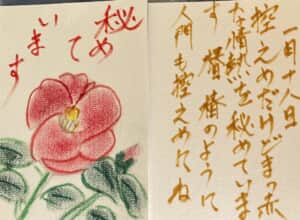 秘め
て
います
一月十八日
控えめだけどまっ赤
な情熱を秘めていま
す 寒椿のように
人間も控えめにね